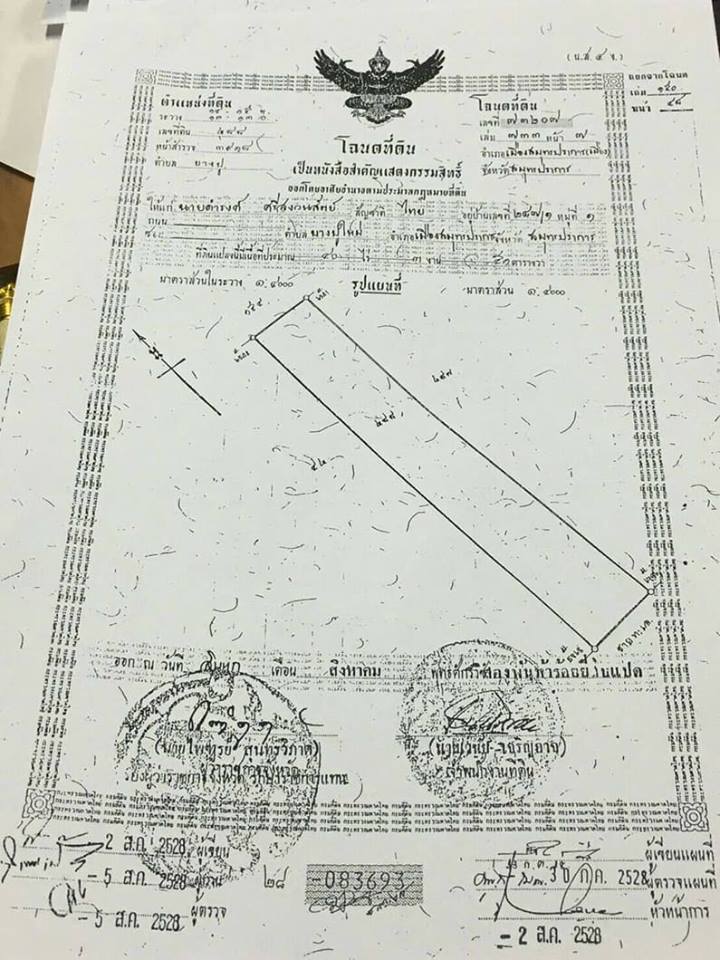 (น.ส. ๔ จ.)
ออกจากโฉนด
เล่ม ๑๔๐
หน้า ๔๘
ตำแหน่งที่ดิน
ระวาง
เลขที่ดิน ๔๘๘
หน้าสำรวจ ๓๙๑๘
ตำบล บางปู
โฉนดที่ดิน
เลขที่ ๗๓๒๐๗
เล่ม ๗๓๓ หน้า ๗
อำเภอเมืองสมุทรปราการ(เมือง)
จังหวัดสมุทรปราการ
โฉนดที่ดิน
เป็นหนังสือสำคัญแสดงกรรมสิทธิ์
ออกโดยอาศัยอำนาจตามประมวลกฎหมายที่ดิน
ให้แก่ นายดำรงค์ ศรีสงวนสัทย์ สัญชาติ ไทย อยู่บ้านเลขที่ ๒๔๗/๑ หมู่ที่ ๑
ถนน
ซอย ตำบล บางปูใหม่ อำเภอเมืองสมุทรปราการ จังหวัด สมุทรปราการ
ที่ดินแปลงนี้มีเนื้อที่ประมาณ ๔๐ ไร่ ๓ งาน ตารางวา
มาตราส่วนในระวาง ๑:๔๐๐๐ รูปแผนที่ มาตราส่วน ๑:๔๐๐๐
น
๑๔๕
๒๔๗
๔๘๘
๕๒
ออก ณ วันที่ เดือน สิงหาคม พุทธศักราช สองพันห้าร้อยยี่สิบแปด
(นายไพฑูรย์ สุนทรวิภาต)
เจ้าพนักงานที่ดิน
2 ส.ค. 2528 ผู้เขียน
- 5 ส.ค. 2528 ผู้ทาน
- 5 ส.ค. 2528 ผู้ตรวจ
๒๘ -083693
ผู้เขียนแผนที่
30 ก.ค. 2528 ผู้ตรวจแผนที่
หัวหน้าการ
- 2 ส.ค. 2528